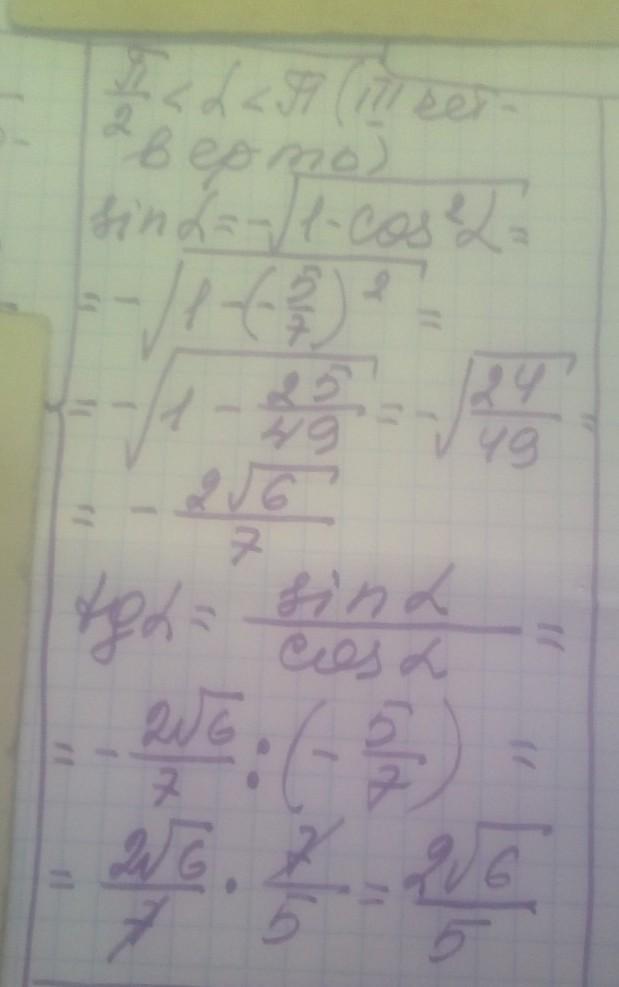 π/2 < α < π (III чет-
верть)
sin α = -√(1 - cos² α) =
= -√(1 - (-5/7)²) =
= -√(1 - 25/49) = -√(24/49) =
= - 2√6/7
tg α = sin α/cos α =
= - 2√6/7 : (- 5/7) =
= 2√6/7 · 7/5 = 2√6/5